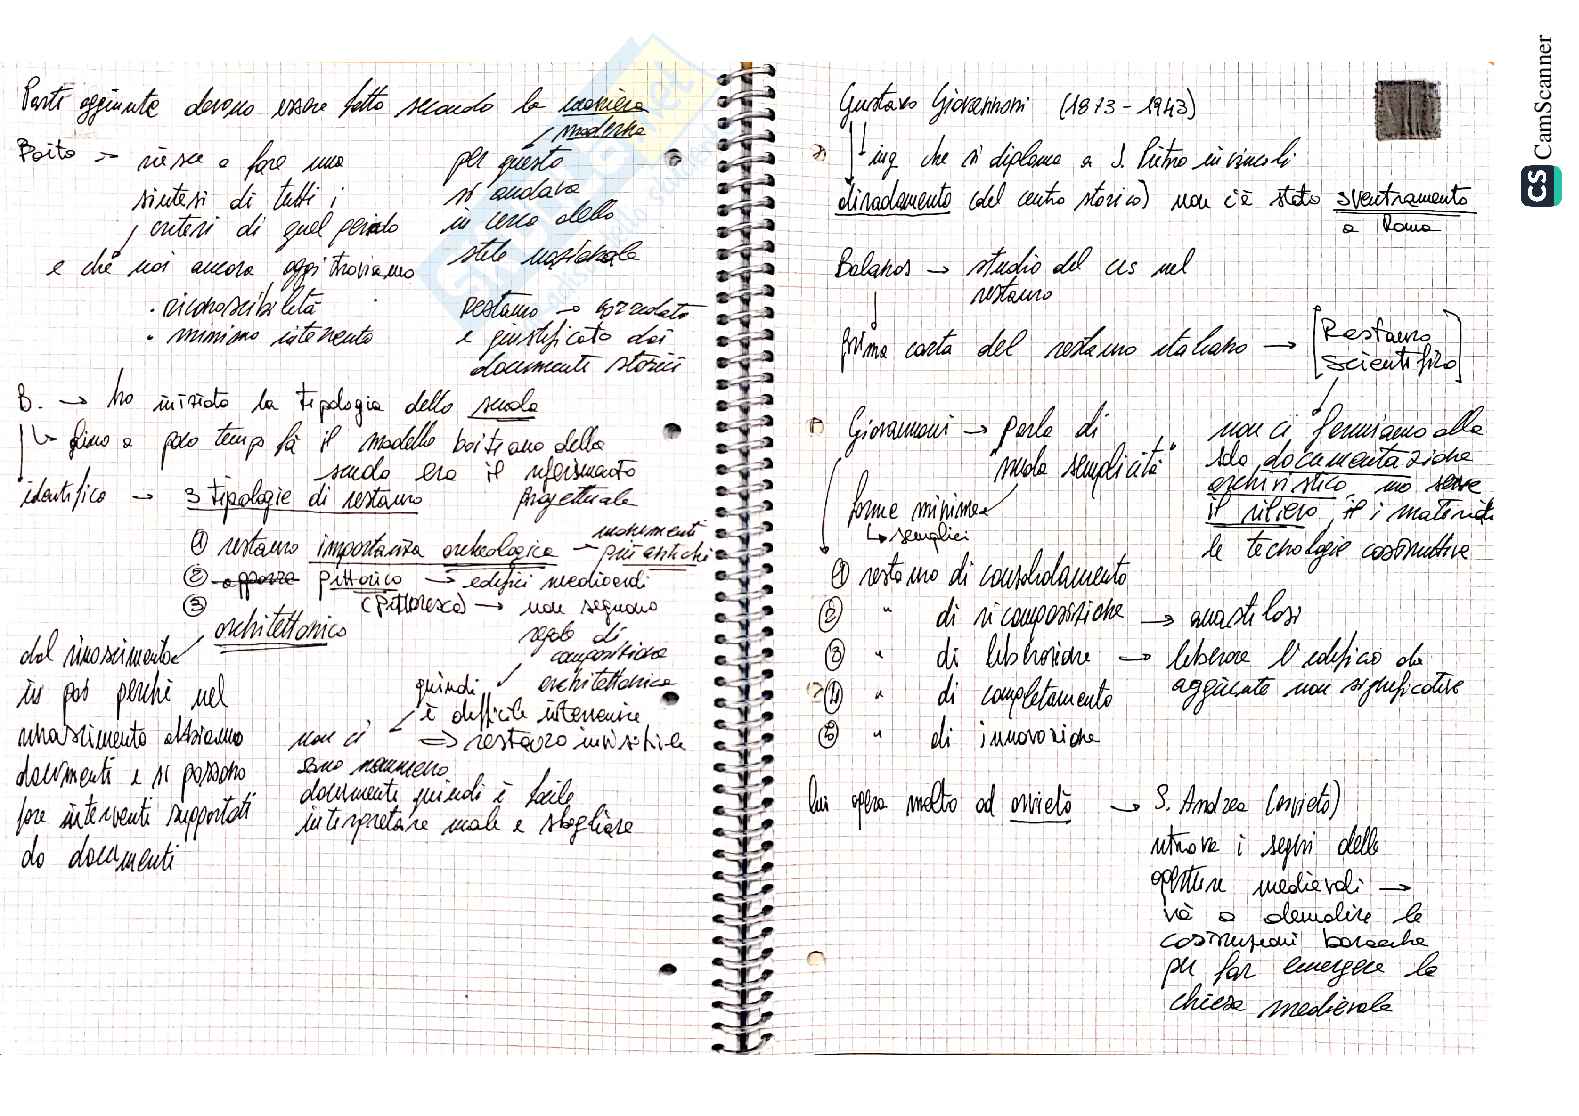 Parti aggiunte devono essere fatte secondo la maniera
moderna
Boito → riesce a fare una
sintesi di tutti i
criteri di quel periodo
e che noi ancora oggi troviamo
· riconoscibilità
· minimo intervento
per questo
si andava
in cerca dello
stile nazionale
restauro →
e giustificato dai
documenti storici
B. → ha iniziato la tipologia della scuola
↳ fino a poco tempo fà il modello boitiano della
scuola era il riferimento
progettuale
identifica → 3 tipologie di restauro
① restauro importanza archeologica → monumenti
più antichi
② pittorico → edifici medioevali
(pittoresco) → non seguono
regole di
composizione
architettonica
③ architettonico
dal rinascimento
in poi perchè nel
rinascimento abbiamo
documenti e si possono
fare interventi supportati
da documenti
quindi
è difficile intervenire
⇒ restauro invisibile
non ci
sono nemmeno
documenti quindi è facile
interpretare male e sbagliare
Gustavo Giovannoni (1873 - 1943)
↳ ing che si diploma a S. Pietro in vincoli
diradamento (del centro storico) non c'è stato sventramento
a Roma
Balanos → studio del cls nel
restauro
prima carta del restauro italiano → [Restauro
scientifico]
Giovannoni → parla di
"nuda semplicità"
forme minime
↳ semplici
non ci fermiamo alla
sola documentazione
archivistica, ma serve
il rilievo, i materiali
le tecnologie costruttive
① restauro di consolidamento
② " di ricomposizione → anastilosi
③ " di liberazione → liberare l'edificio da
aggiunte non significative
④ " di completamento
⑤ " di innovazione
lui opera molto ad orvieto → S. Andrea (orvieto)
ritrova i segni delle
aperture medievali →
và a demolire le
costruzioni barocche
per far emergere la
chiesa medievale
CS CamScanner